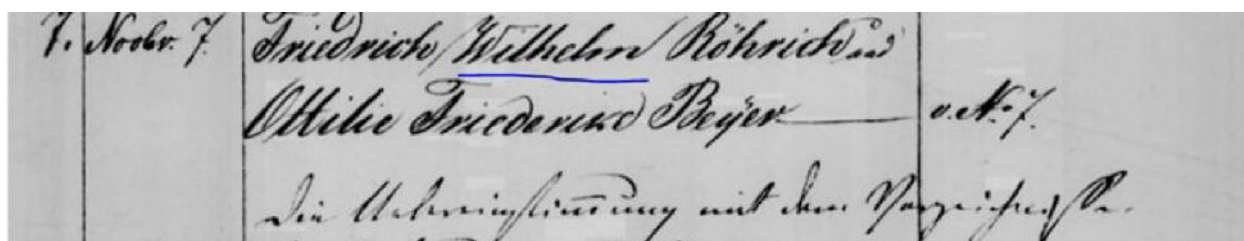 7. Novbr. 7. Friedrich Wilhelm Röhrich und
Ottilie Friederike Beÿer v. No 7.
Die Uebereinstimmung mit dem Verzeichnisse